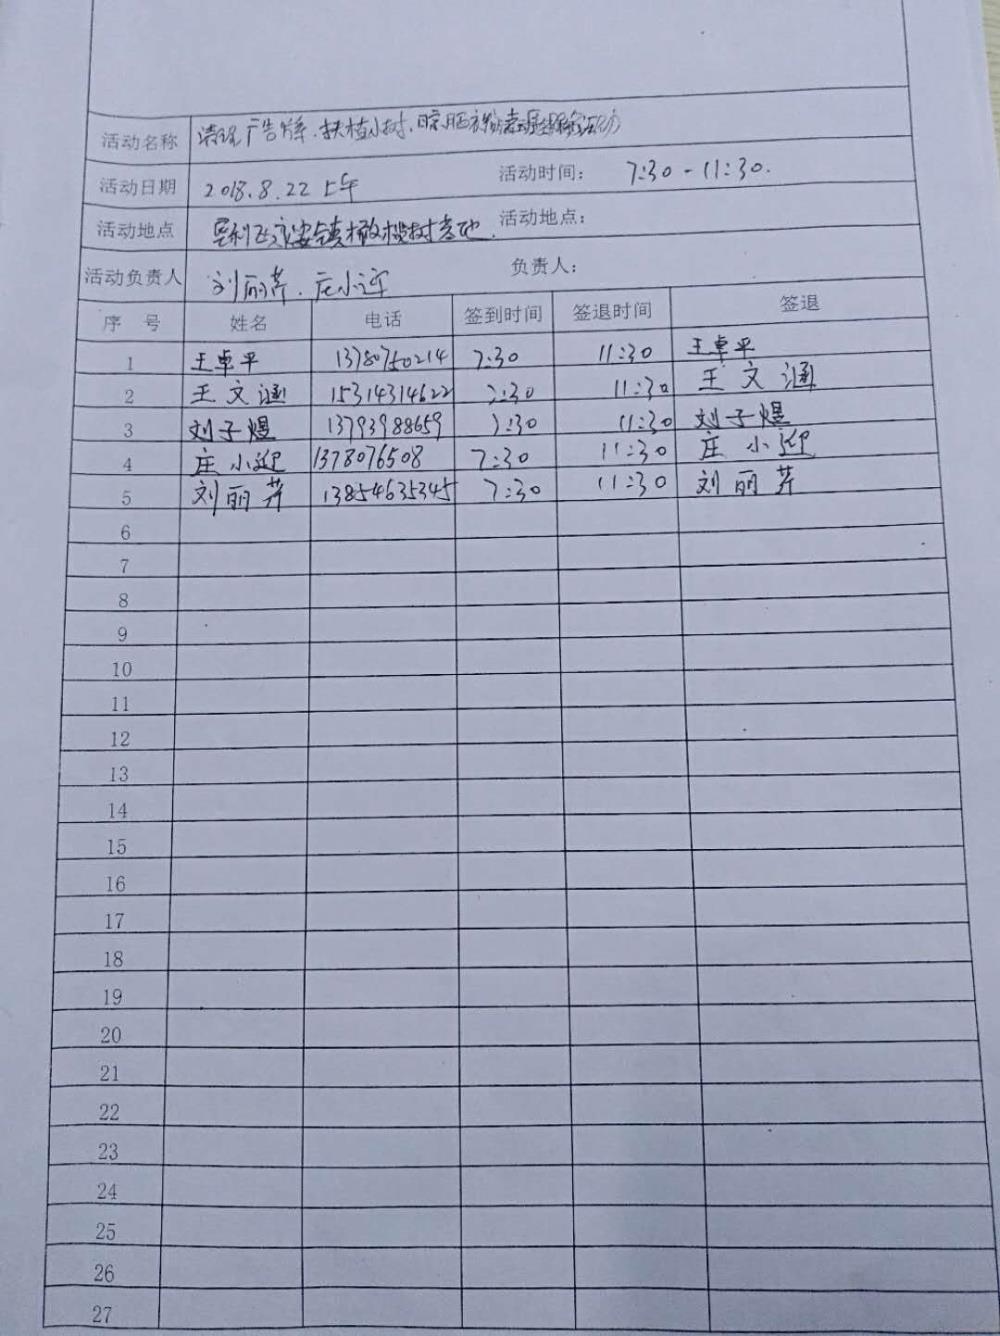 活动名称 清理广告牌、扶植小树、晾晒衣物
活动日期 2018.8.22上午 活动时间： 7:30-11:30.
活动地点 垦利区永安镇 树基地. 活动地点：
活动负责人 刘丽芹、庄小迎 负责人：
序 号 姓名 电话 签到时间 签退时间 签退
1 王卓平 13780750214 7:30 11:30 王卓平
2 王文涵 15314314622 7:30 11:30 王文涵
3 刘子煜 13793988659 7:30 11:30 刘子煜
4 庄小迎 1378076508 7:30 11:30 庄小迎
5 刘丽芹 13854635345 7:30 11:30 刘丽芹
6
7
8
9
10
11
12
13
14
15
16
17
18
19
20
21
22
23
24
25
26
27